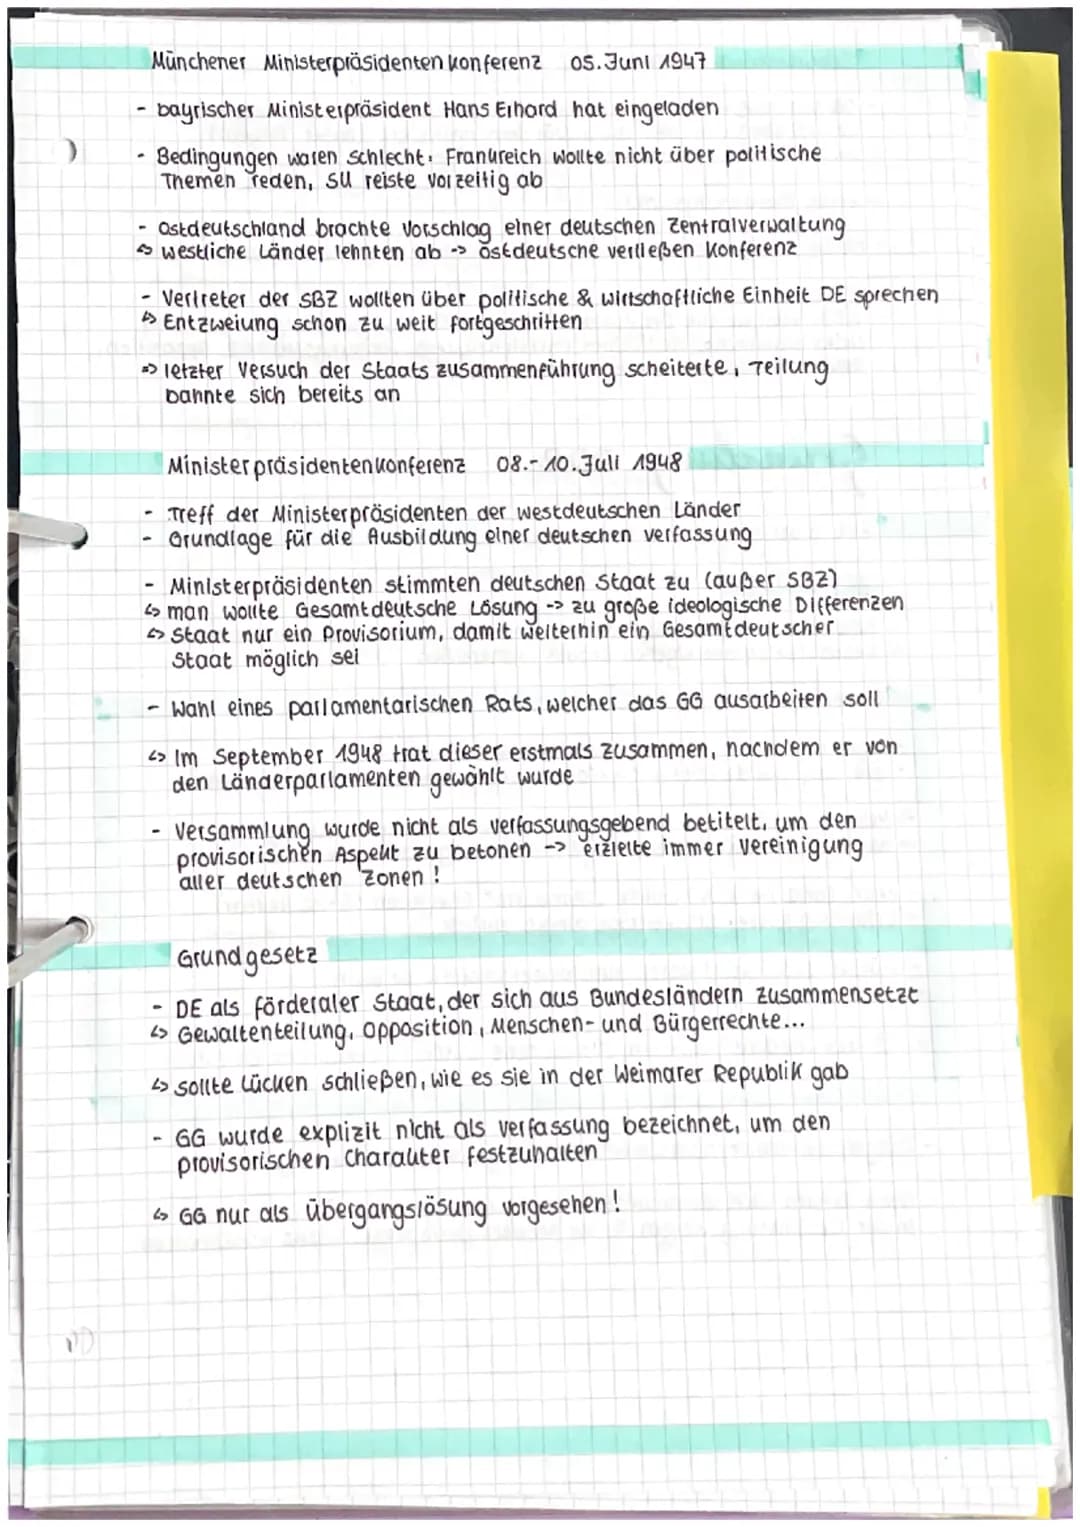 Münchener Ministerpräsidentenkonferenz 05. Juni 1947
- bayrischer Ministerpräsident Hans Erhard hat eingeladen
- Bedingungen waren schlecht: Frankreich wollte nicht über politische
Themen reden, SU reiste vorzeitig ab
- Ostdeutschland brachte Vorschlag einer deutschen Zentralverwaltung
↳ westliche Länder lehnten ab -> ostdeutsche verließen Konferenz
- Vertreter der SBZ wollten über politische & wirtschaftliche Einheit DE sprechen
↳ Entzweiung schon zu weit fortgeschritten
=> letzter Versuch der Staatszusammenführung scheiterte, Teilung
bahnte sich bereits an
Ministerpräsidentenkonferenz 08.-10. Juli 1948
- Treff der Ministerpräsidenten der westdeutschen Länder
- Grundlage für die Ausbildung einer deutschen Verfassung
- Ministerpräsidenten stimmten deutschen Staat zu (außer SBZ)
↳ man wollte Gesamtdeutsche Lösung -> zu große ideologische Differenzen
↳ Staat nur ein Provisorium, damit weiterhin ein Gesamtdeutscher
Staat möglich sei
- Wahl eines parlamentarischen Rats, welcher das GG ausarbeiten soll
↳ Im September 1948 trat dieser erstmals zusammen, nachdem er von
den Länderparlamenten gewählt wurde
- Versammlung wurde nicht als verfassungsgebend betitelt, um den
provisorischen Aspekt zu betonen -> erzielte immer Vereinigung
aller deutschen Zonen!
Grundgesetz
- DE als förderaler Staat, der sich aus Bundesländern zusammensetzt
↳ Gewaltenteilung, Opposition, Menschen- und Bürgerrechte...
↳ sollte Lücken schließen, wie es sie in der Weimarer Republik gab
- GG wurde explizit nicht als Verfassung bezeichnet, um den
provisorischen Charakter festzuhalten
↳ GG nur als Übergangslösung vorgesehen!